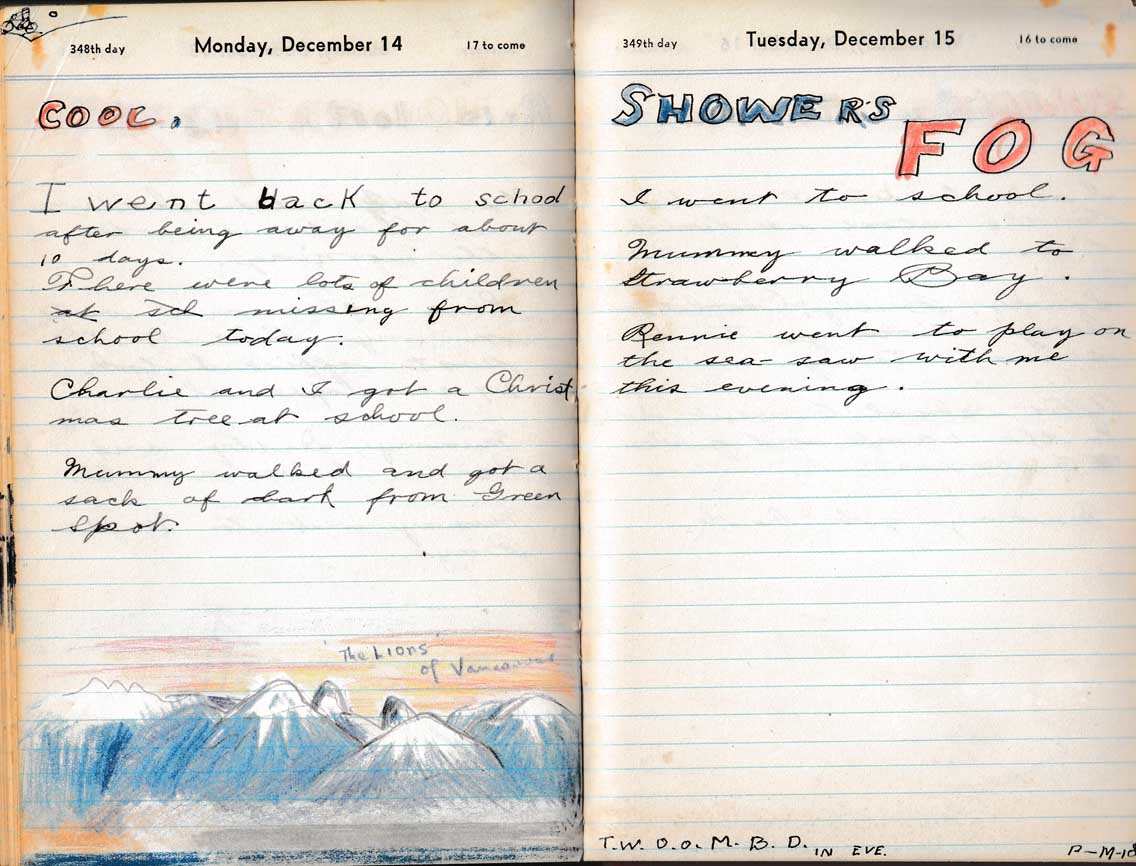 348th day Monday, December 14 17 to come
COOL.
I went back to school
after being away for about
10 days.
There were lots of children
at sch missing from
school today.
Charlie and I got a Christ
mas tree at school.
Mummy walked and got a
sack of bark from Green
Spot.
"The Lions"
of Vancouver
349th day Tuesday, December 15 16 to come
SHOWERS
FOG
I went to school.
Mummy walked to
Strawberry Bay.
Rennie went to play on
the sea-saw with me
this evening.
T.W.O.O.M.B.D. IN EVE. P-M-18